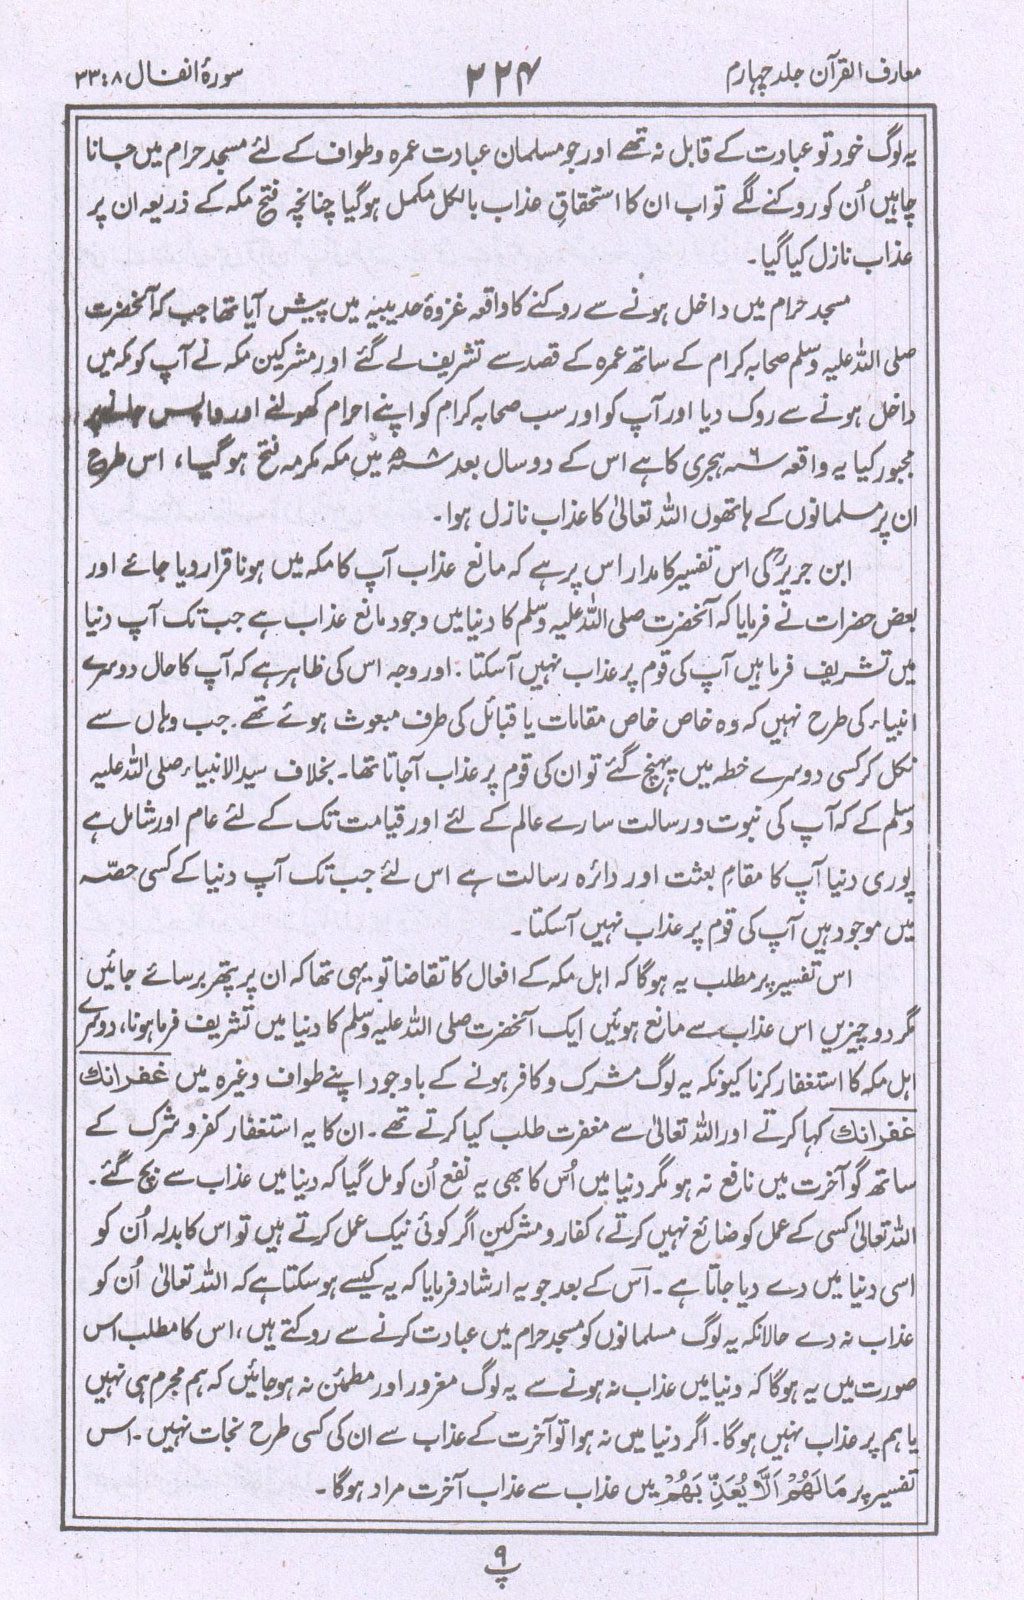 معارف القرآن جلد چہارم
۲۲۴
سورۂ انفال ۸: ۳۳
یہ لوگ خود تو عبادت کے قابل نہ تھے اور جو مسلمان عبادت عمرہ و طواف کے لئے مسجد حرام میں جانا
چاہیں اُن کو روکنے لگے تو اب ان کا استحقاقِ عذاب بالکل مکمل ہوگیا چنانچہ فتح مکہ کے ذریعہ ان پر
عذاب نازل کیا گیا۔
مسجد حرام میں داخل ہونے سے روکنے کا واقعہ غزوۂ حدیبیہ میں پیش آیا تھا جب کہ آنحضرت
صلی اللہ علیہ وسلم صحابہ کرام کے ساتھ عمرہ کے قصد سے تشریف لے گئے اور مشرکین مکہ نے آپ کو مکہ میں
داخل ہونے سے روک دیا اور آپ کو اور سب صحابہ کرام کو اپنے احرام کھولنے اور واپس جانے پر
مجبور کیا یہ واقعہ ۶ سہ ہجری کا ہے اس کے دو سال بعد ۸ سہ میں مکہ مکرمہ فتح ہوگیا، اس طرح
ان پر مسلمانوں کے ہاتھوں اللہ تعالیٰ کا عذاب نازل ہوا۔
ابن جریرؒ کی اس تفسیر کا مدار اس پر ہے کہ مانع عذاب آپ کا مکہ میں ہونا قرار دیا جائے اور
بعض حضرات نے فرمایا کہ آنحضرت صلی اللہ علیہ وسلم کا دنیا میں وجود مانع عذاب ہے جب تک آپ دنیا
میں تشریف فرما ہیں آپ کی قوم پر عذاب نہیں آسکتا۔ اور وجہ اس کی ظاہر ہے کہ آپ کا حال دوسرے
انبیاء کی طرح نہیں کہ وہ خاص خاص مقامات یا قبائل کی طرف مبعوث ہوئے تھے۔ جب وہاں سے
نکل کر کسی دوسرے خطہ میں پہنچ گئے تو ان کی قوم پر عذاب آجاتا تھا۔ بخلاف سید الانبیاء صلی اللہ علیہ
وسلم کے کہ آپ کی نبوت و رسالت سارے عالم کے لئے اور قیامت تک کے لئے عام اور شامل ہے
پوری دنیا آپ کا مقامِ بعثت اور دائرہ رسالت ہے اس لئے جب تک آپ دنیا کے کسی حصّہ
میں موجود ہیں آپ کی قوم پر عذاب نہیں آسکتا۔
اس تفسیر پر مطلب یہ ہوگا کہ اہل مکہ کے افعال کا تقاضا تو یہی تھا کہ ان پر پتھر برسائے جائیں
مگر دو چیزیں اس عذاب سے مانع ہوئیں ایک آنحضرت صلی اللہ علیہ وسلم کا دنیا میں تشریف فرما ہونا، دوسرے
اہل مکہ کا استغفار کرنا کیونکہ یہ لوگ مشرک و کافر ہونے کے باوجود اپنے طواف وغیرہ میں غفرانك
غفرانك کہا کرتے اور اللہ تعالیٰ سے مغفرت طلب کیا کرتے تھے۔ ان کا یہ استغفار کفر و شرک کے
ساتھ گو آخرت میں نافع نہ ہو مگر دنیا میں اُس کا بھی یہ نفع اُن کو مل گیا کہ دنیا میں عذاب سے بچ گئے۔
اللہ تعالیٰ کسی کے عمل کو ضائع نہیں کرتے، کفار و مشرکین اگر کوئی نیک عمل کرتے ہیں تو اس کا بدلہ اُن کو
اسی دنیا میں دے دیا جاتا ہے۔ اس کے بعد جو یہ ارشاد فرمایا کہ یہ کیسے ہوسکتا ہے کہ اللہ تعالیٰ اُن کو
عذاب نہ دے حالانکہ یہ لوگ مسلمانوں کو مسجد حرام میں عبادت کرنے سے روکتے ہیں، اس کا مطلب اس
صورت میں یہ ہوگا کہ دنیا میں عذاب نہ ہونے سے یہ لوگ مغرور اور مطمئن نہ ہوجائیں کہ ہم مجرم ہی نہیں
یا ہم پر عذاب نہیں ہوگا۔ اگر دنیا میں نہ ہوا تو آخرت کے عذاب سے ان کی کسی طرح نجات نہیں۔ اس
تفسیر پر مَا لَهُمْ اَلَّا يُعَذِّبَهُمْ میں عذاب سے عذاب آخرت مراد ہوگا۔
۹
پ